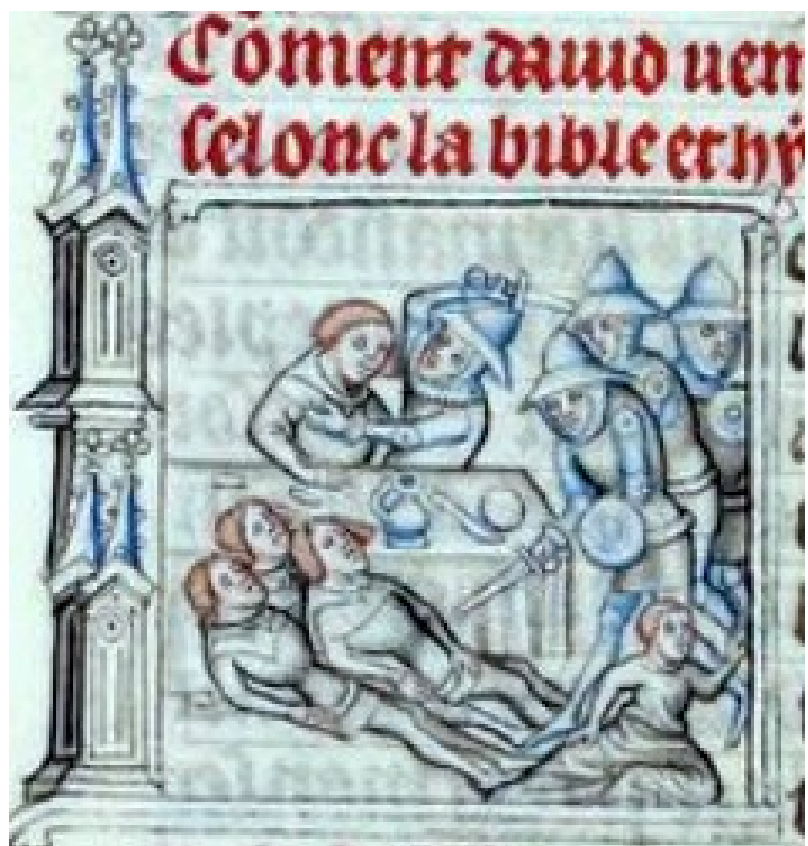 Cōment dauid uen
selonc la bible et hy